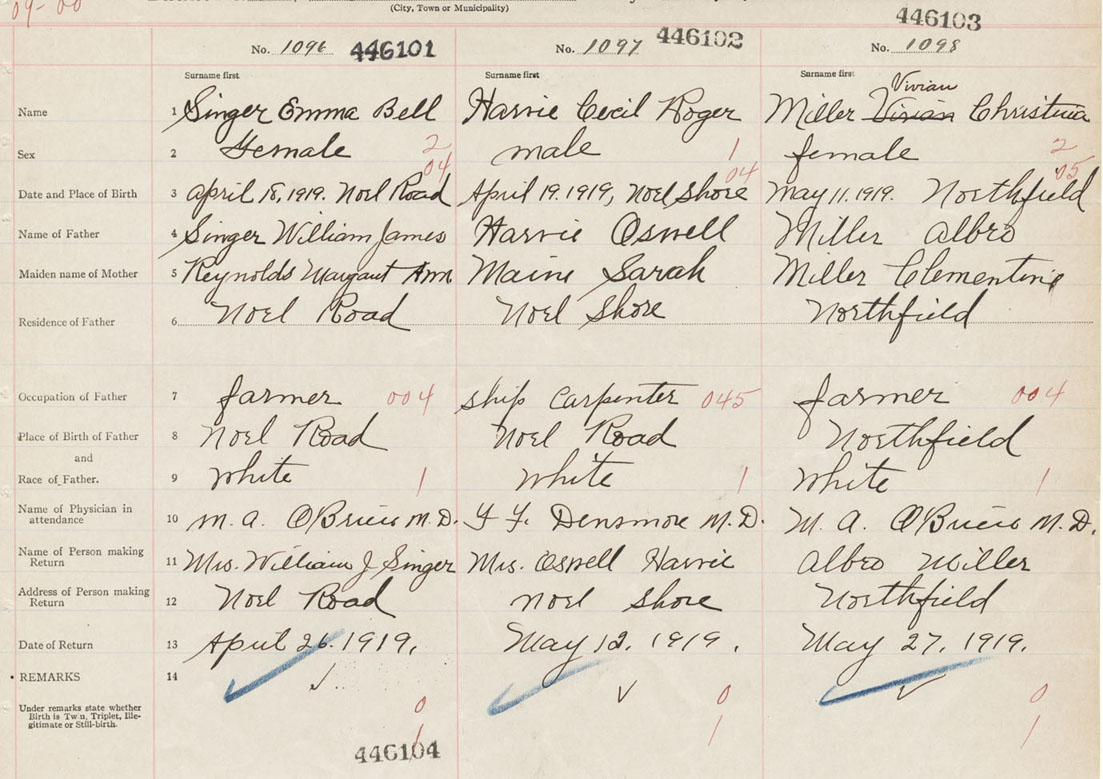 04-00
(City, Town or Municipality)
No. 1096 446101 No. 1097 446102 No. 1098 446103
Surname first Surname first Surname first
Vivian
Name 1 Singer Emma Bell Harvie Cecil Roger Miller Vivian Christina
Sex 2 Female 2 male 1 female 2
04 04 05
Date and Place of Birth 3 april 18, 1919. Noel Road April 19. 1919, Noel Shore May 11. 1919. Northfield
Name of Father 4 Singer William James Harvie Oswell Miller Albro
Maiden name of Mother 5 Reynolds Margaut Ann Maine Sarah Miller Clementine
Residence of Father 6 Noel Road Noel Shore Northfield
Occupation of Father 7 farmer 004 ship carpenter 045 farmer 004
Place of Birth of Father 8 Noel Road Noel Road Northfield
and
Race of Father. 9 white 1 white 1 white 1
Name of Physician in
attendance 10 M. A. O'Brien M.D. F. F. Densmore M.D. M. A. O'Brien M.D.
Name of Person making
Return 11 Mrs. William J Singer Mrs. Oswell Harvie Albro Miller
Address of Person making
Return 12 Noel Road Noel Shore Northfield
Date of Return 13 April 26. 1919. May 12. 1919. May 27. 1919.
REMARKS 14
Under remarks state whether
Birth is Twin, Triplet, Ille-
gitimate or Still-birth.
0 0 0
1 1 1
446104